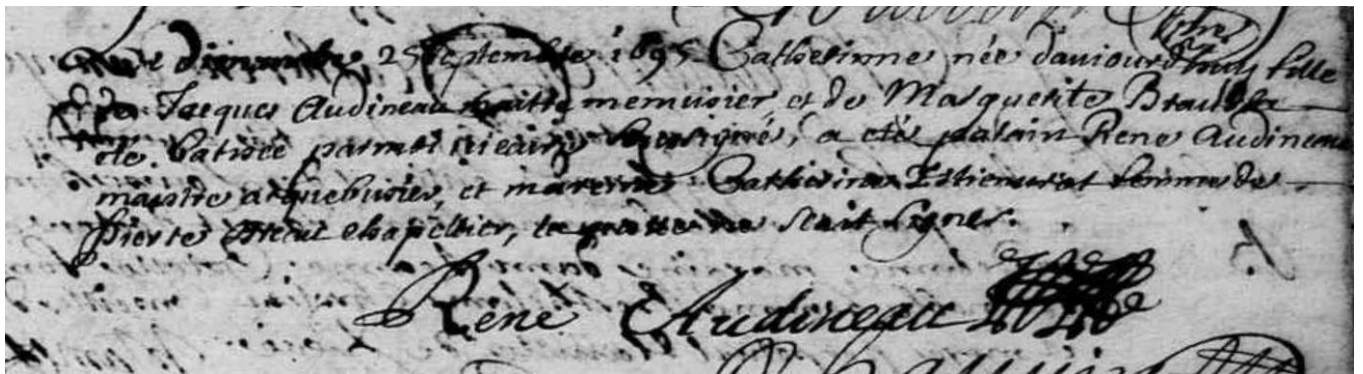 Le dimanche 25 septembre 1695 Catherinne née d'aujourd'huy fille
de Jacques Audineau maitre menusier et de Marguerite
été batisée par moi vicaire soussigné, a été parain René Audineau
maistre arquebusier, et mareine Catherine femme de
Pierre chapellier, laquelle ne scait signer.
René Audineau